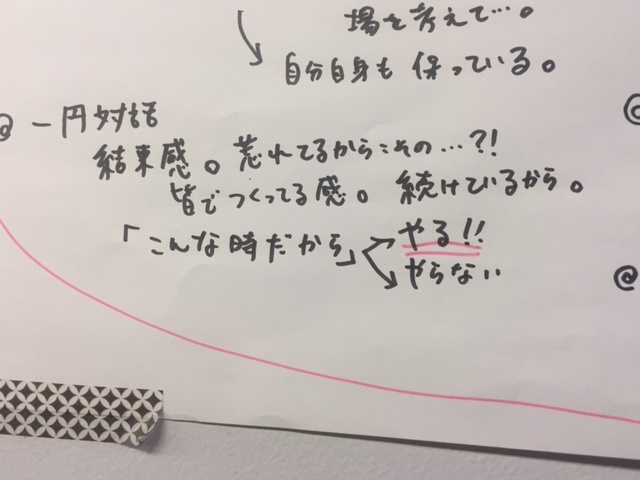 場を考えて…。
自分自身も保っている。
@ 一円対話
結束感。荒れてるからこその…?!
皆でつくってる感。続けているから。
「こんな時だから」 やる!!
やらない
@
@